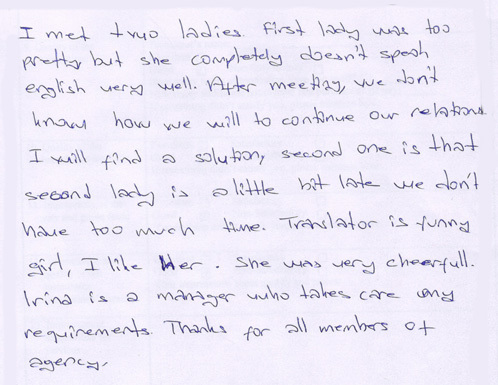 I met two ladies. First lady was too
pretty but she completely doesn't speak
english very well. After meeting, we don't
know how we will to continue our relations.
I will find a solution, second one is that
second lady is a little bit late we don't
have too much time. Translator is funny
girl, I like Her. She was very cheerfull.
Irina is a manager who takes care any
requirements. Thanks for all members of
agency.